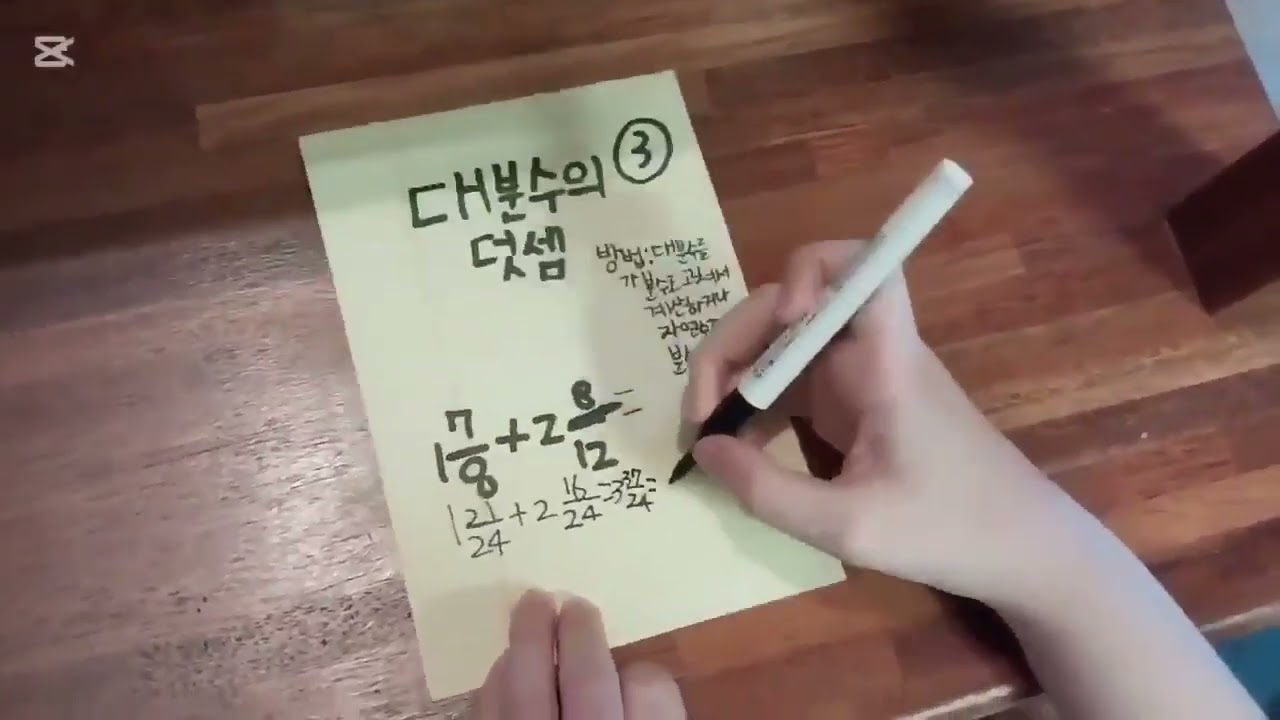 대분수의 ③
덧셈
방법: 대분수를
가분수로 고쳐서
계산하거나
1 7/8 + 2 8/12 =
1 21/24 + 2 16/24 = 3 37/24 =